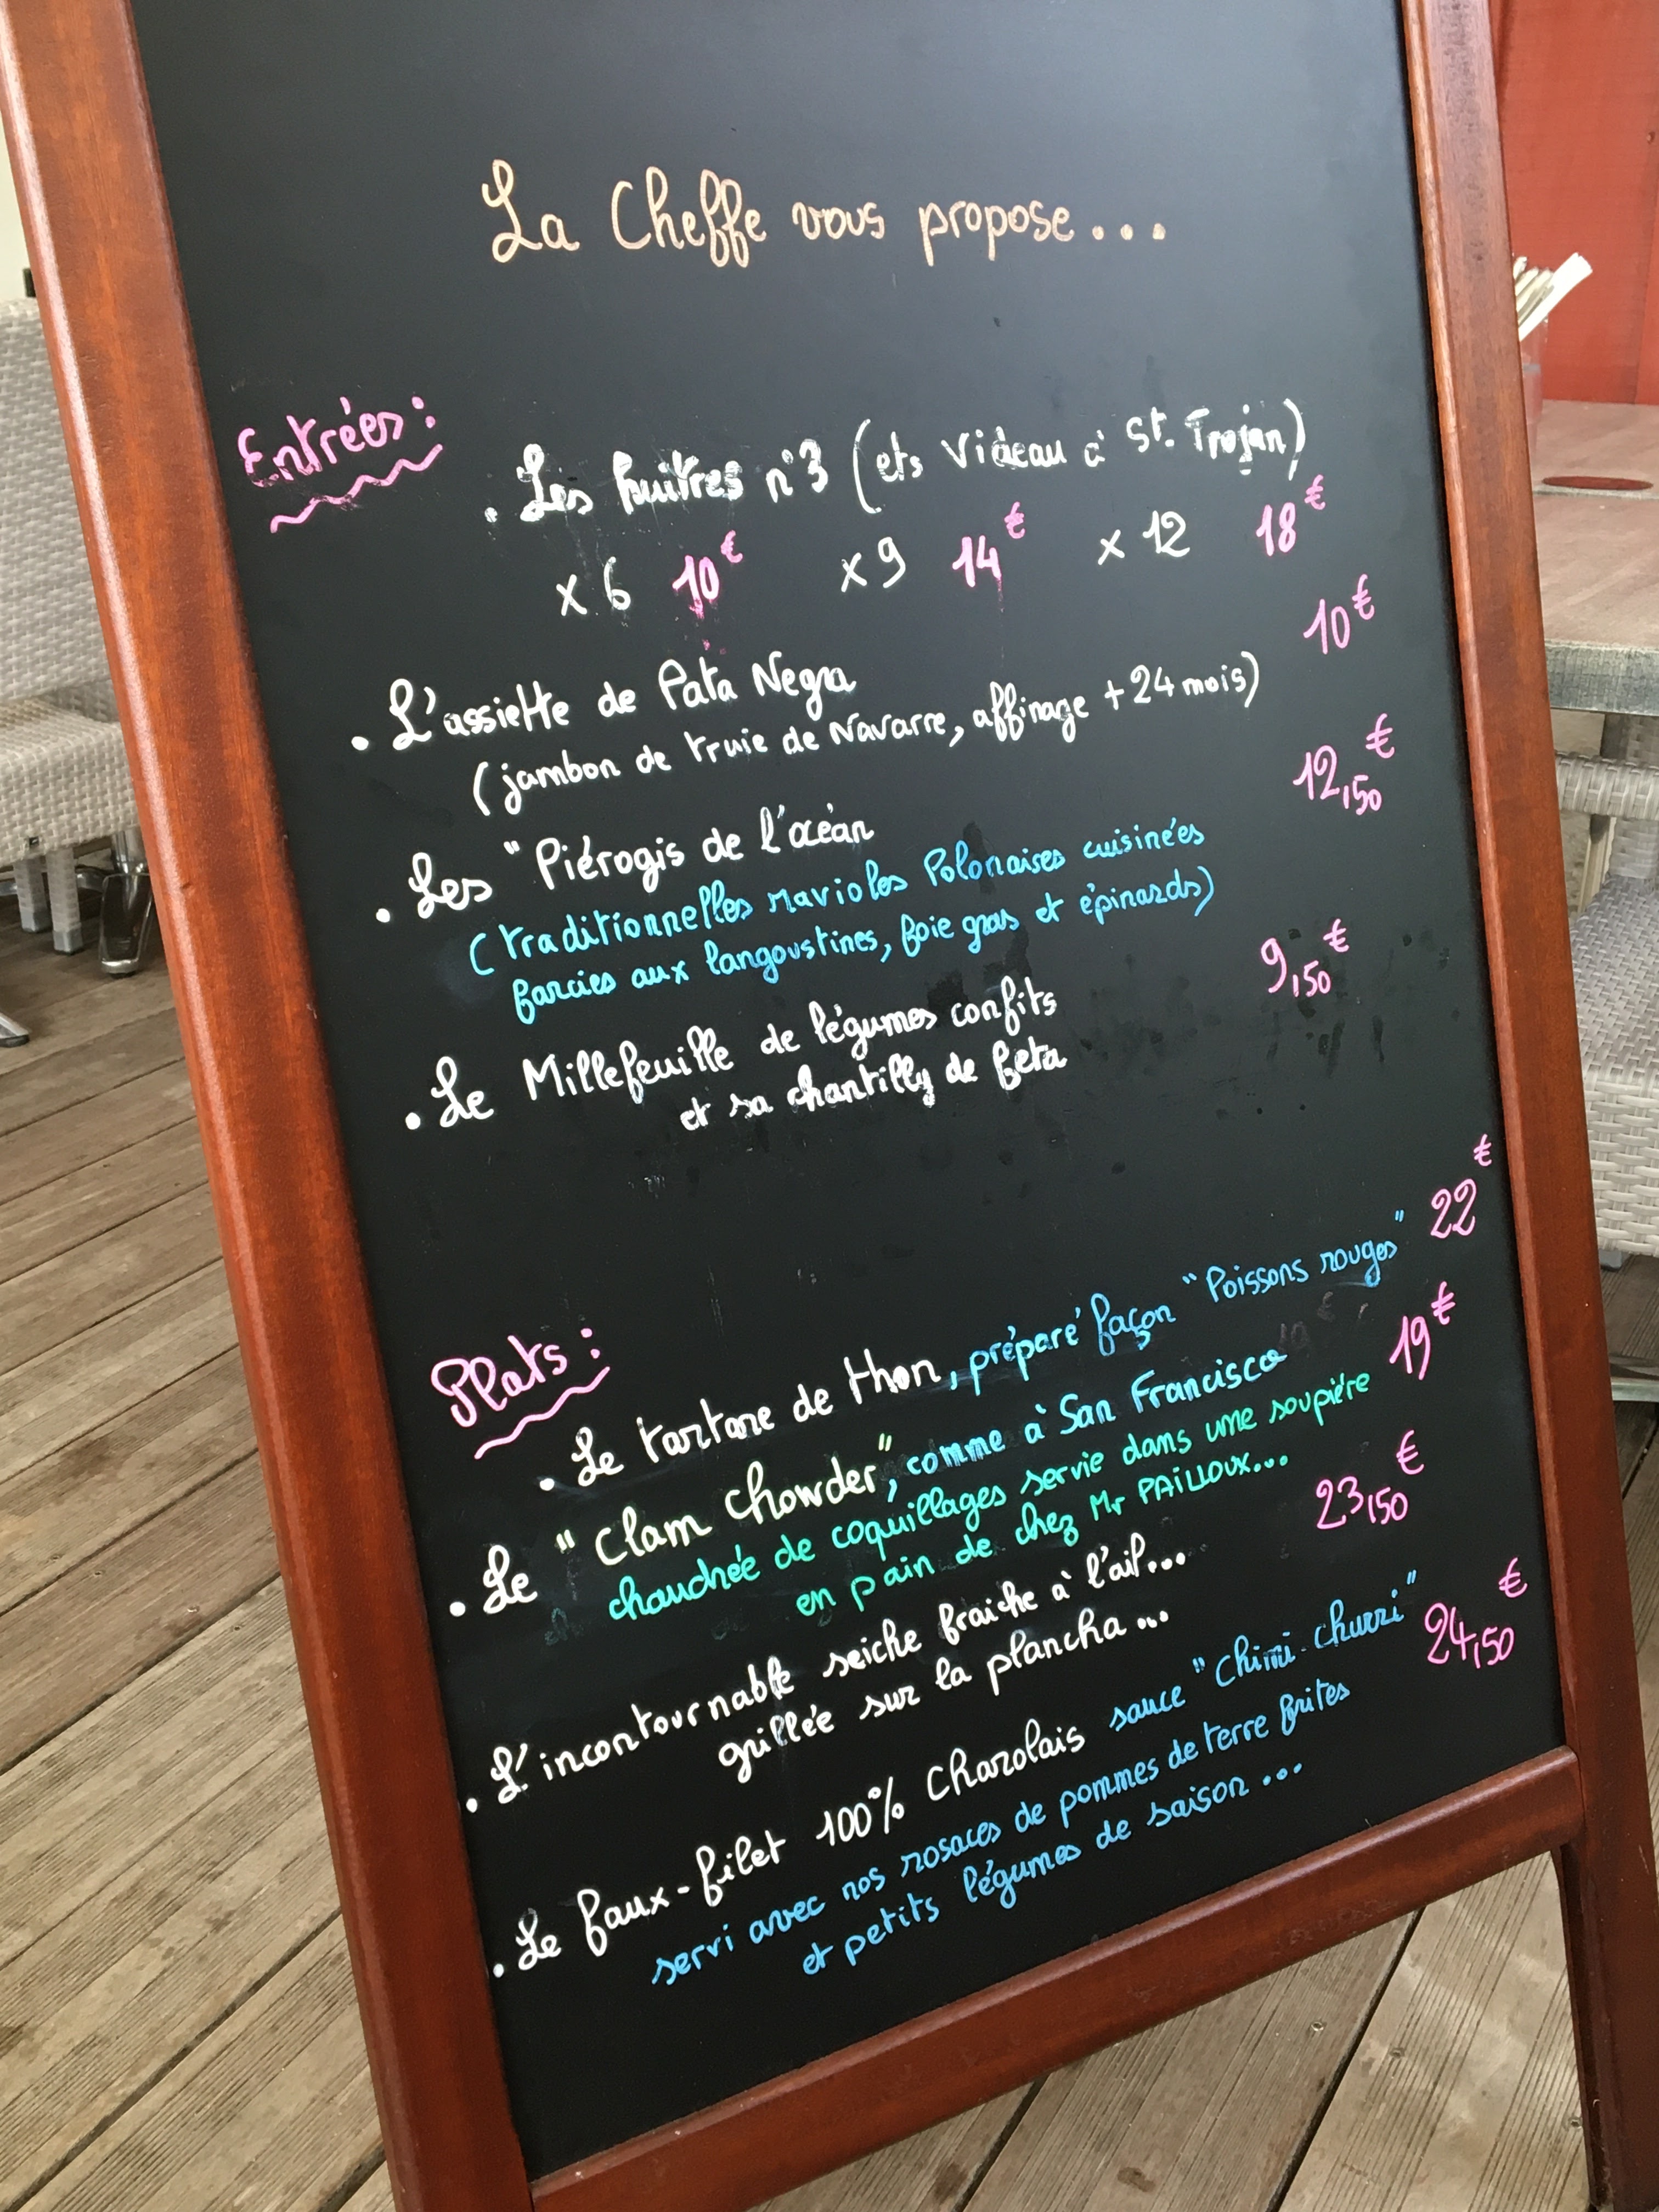 La Cheffe vous propose...
Entrées:
. Les huitres n°3 (ets Videau à St. Trojan)
x 6 10€ x 9 14€ x 12 18€
. L'assiette de Pata Negra 10€
(jambon de truie de Navarre, affinage +24 mois)
. Les "Piérogis de l'océan 12,50€
(traditionnelles ravioles Polonaises cuisinées
farcies aux langoustines, foie gras et épinards)
. Le Millefeuille de légumes confits 9,50€
et sa chantilly de feta
Plats:
. Le tartare de thon, préparé façon "Poissons rouges" 22€
. Le "Clam Chowder", comme à San Francisco 19€
chaudrée de coquillages servie dans une soupière
en pain de chez Mr PAILLOUX...
. L'incontournable seiche fraiche à l'ail... 23,50€
grillée sur la plancha...
. Le faux-filet 100% Charolais sauce "Chimi-churri" 24,50€
servi avec nos rosaces de pommes de terre frites
et petits légumes de saison...